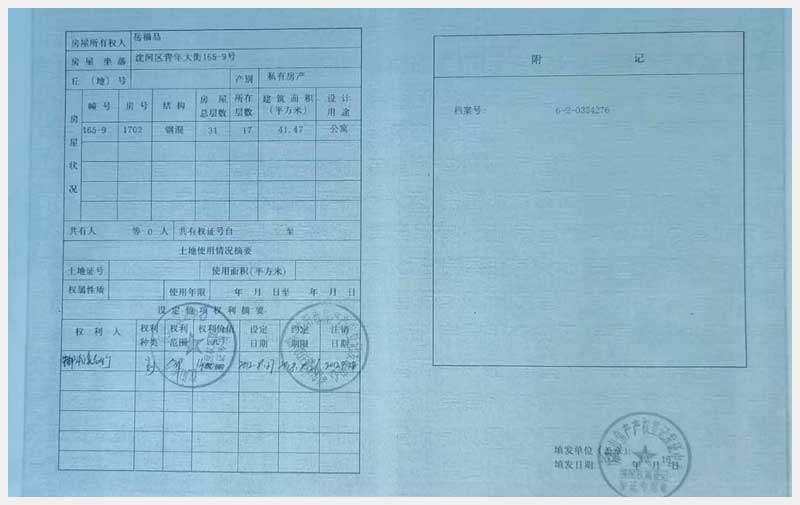 房屋所有权人 岳福昌
房屋坐落 沈河区青年大街165-9号
丘(地)号 产别 私有房产
房屋状况
幢号 房号 结构 房屋总层数 所在层数 建筑面积(平方米) 设计用途
165-9 1702 钢混 31 17 41.47 公寓
共有人 等 0 人 共有权证号自 至
土地使用情况摘要
土地证号 使用面积(平方米)
权属性质 使用年限 年 月 日至 年 月 日
设定他项权利摘要
权利人 权利种类 权利范围 权利价值 设定日期 约定期限 注销日期
附 记
档案号: 6-2-0334276
填发单位(盖章):
填发日期: 年 月 日